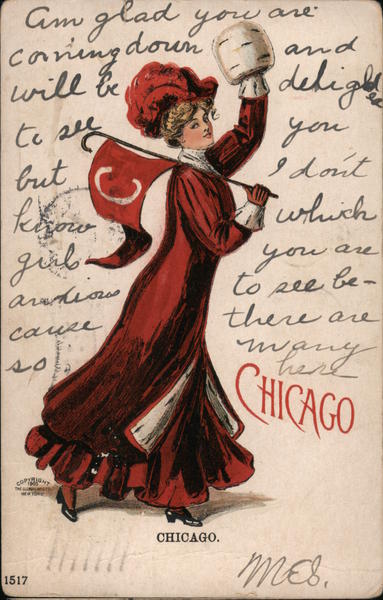 Am glad you are
coming down and
will be delighted
to see you
but I don't
know which
girl you are
anxious to see be-
cause there are
so many
here
C
CHICAGO
COPYRIGHT
1905
NEW YORK
CHICAGO.
1517